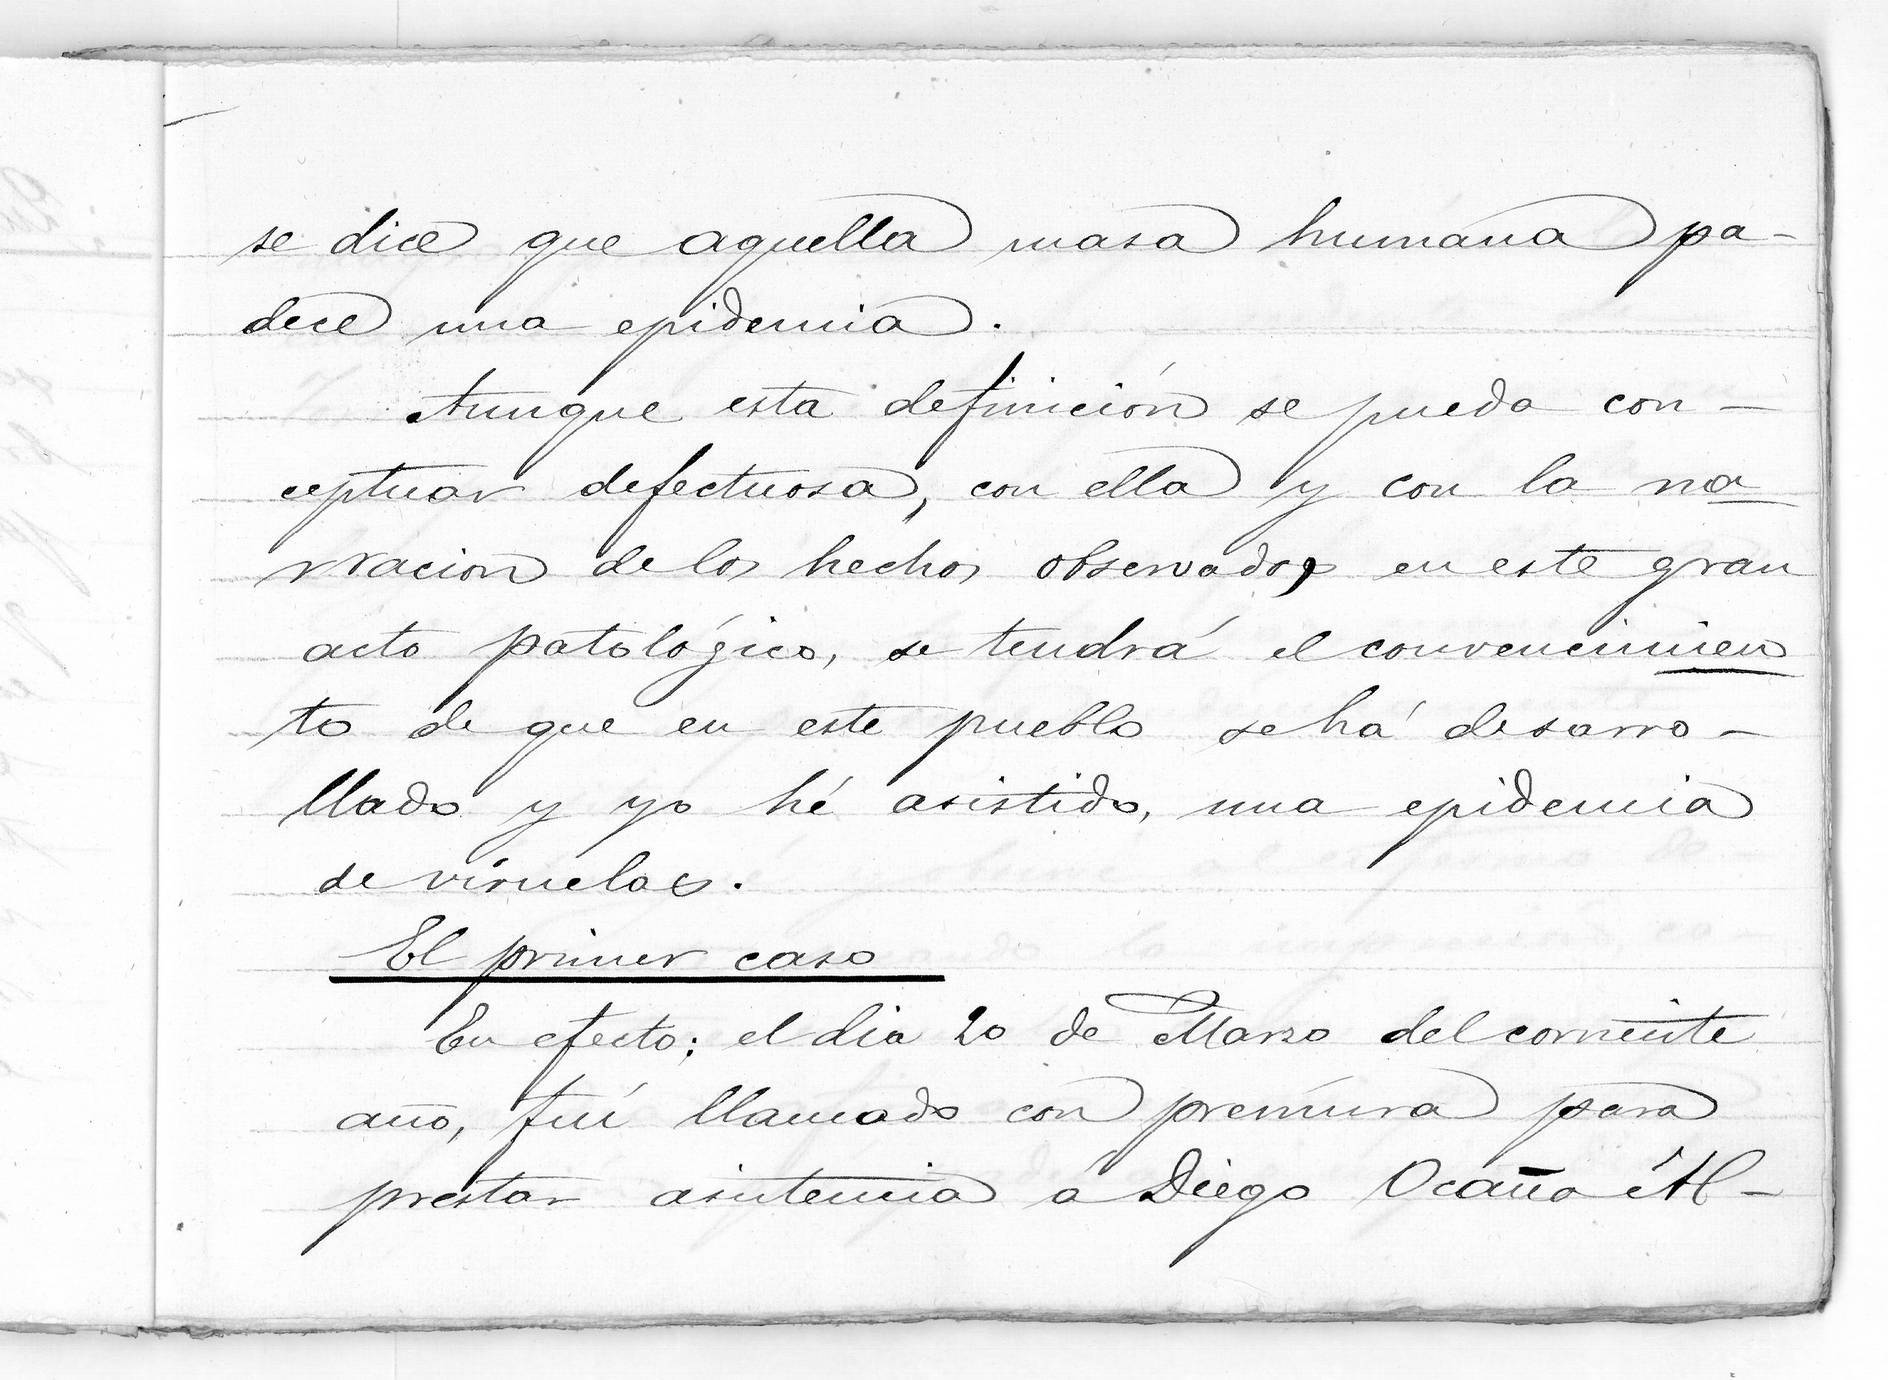 se dice que aquella masa humana pa-
dece una epidemia.
Aunque esta definición se pueda con-
ceptuar defectuosa, con ella y con la na
rracion de los hechos observados en este gran
acto patológico, se tendrá el convencimien
to de que en este pueblo se há desarro-
llado y yo hé asistido, una epidemia
de viruelas.
El primer caso
En efecto; el dia 20 de Marzo del corriente
año, fuí llamado con premura para
prestar asistencia á Diego Ocaña Al-